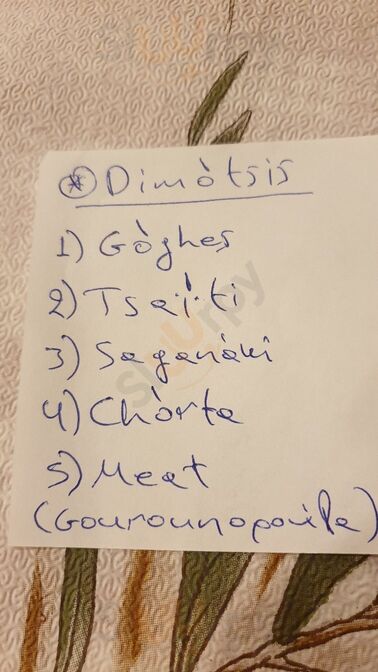 * Dimòtsis
1) Gòghes
2) Tsaï̀ti
3) Saganàki
4) Chòrta
5) Meat
(Gourounopoula)
Sluurpy